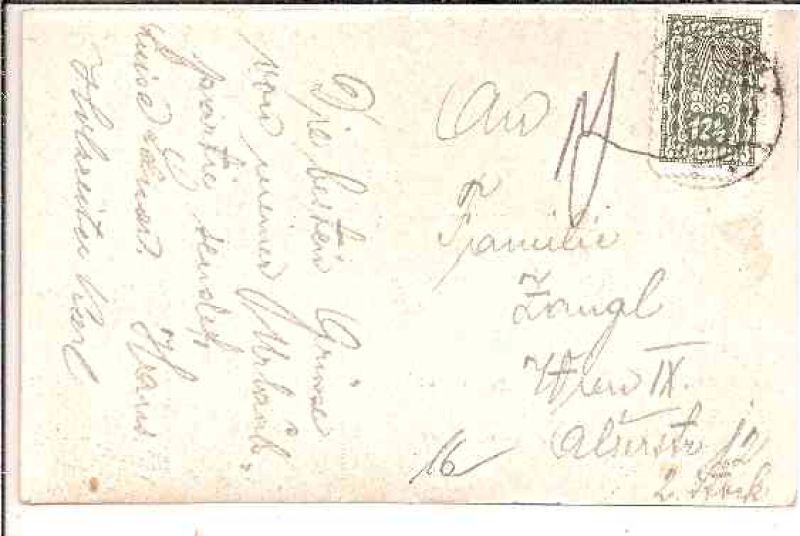 Die besten Grüsse
von meiner Urlaubs-
partie sendet
Hans.
An
Familie
Zangl
Wien IX.
Alserstr 12
2. Stock
16